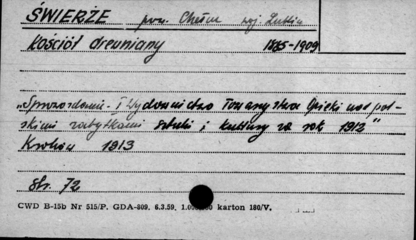 ŚWIERŻE pow. Chełm woj. Lublin
Kościół drewniany 1885-1909
"Sprawozdanie i Wydawnictwo Towarzystwa Opieki nad pol-
skimi zabytkami sztuki i kultury za rok 1912"
Kraków 1913
Str. 72
CWD B-15b Nr 515/P. GDA-809. 6.3.59. karton 180/V.